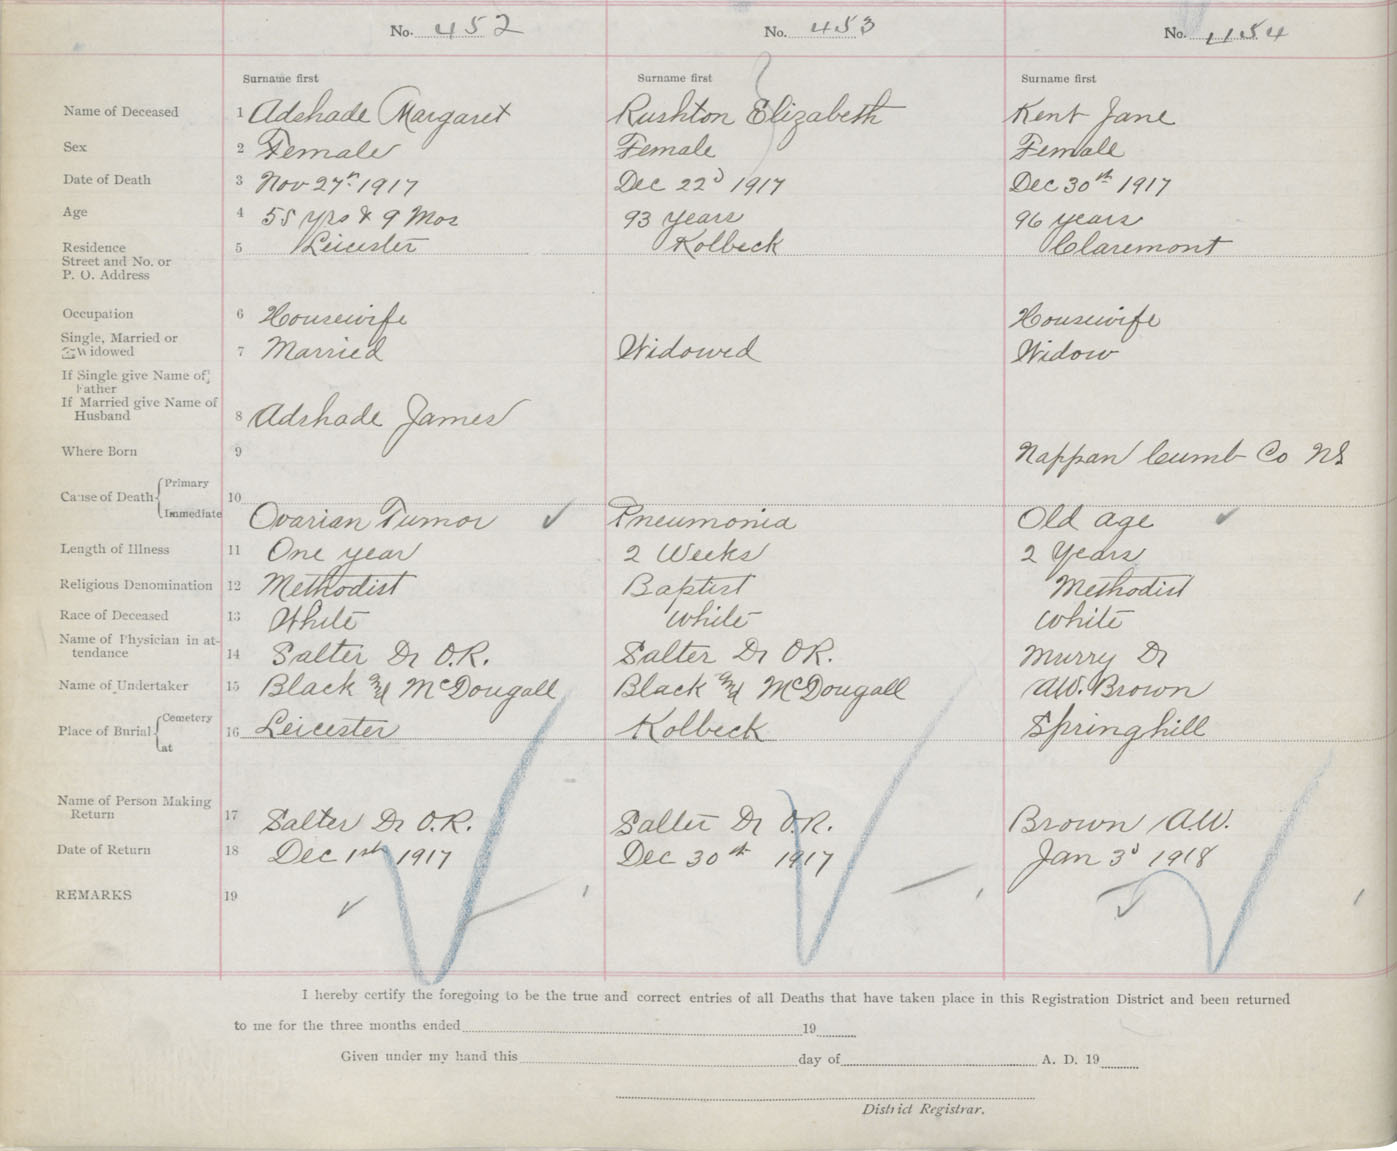 No. 452 No. 453 No. 454
Surname first Surname first Surname first
Name of Deceased 1 Adshade Margaret Rushton Elizabeth Kent Jane
Sex 2 Female Female Female
Date of Death 3 Nov 27th 1917 Dec 22d 1917 Dec 30th 1917
Age 4 55 yrs & 9 Mos 93 years 96 years
Residence 5 Leicester Kolbeck Claremont
Street and No. or
P. O. Address
Occupation 6 Housewife Housewife
Single, Married or
Widowed 7 Married Widowed Widow
If Single give Name of
Father
If Married give Name of
Husband 8 Adshade James
Where Born 9 Nappan Cumb Co NS
Cause of Death Primary 10
Immediate Ovarian Tumor Pneumonia Old age
Length of Illness 11 One year 2 Weeks 2 Years
Religious Denomination 12 Methodist Baptist Methodist
Race of Deceased 13 White White White
Name of Physician in at-
tendance 14 Salter Dr O.R. Salter Dr O.R. Murry Dr
Name of Undertaker 15 Black and McDougall Black and McDougall A.W. Brown
Place of Burial Cemetery
at 16 Leicester Kolbeck Springhill
Name of Person Making
Return 17 Salter Dr O.R. Salter Dr O.R. Brown A.W.
Date of Return 18 Dec 1st 1917 Dec 30th 1917 Jan 3d 1918
REMARKS 19
I hereby certify the foregoing to be the true and correct entries of all Deaths that have taken place in this Registration District and been returned
to me for the three months ended 19
Given under my hand this day of A. D. 19
District Registrar.